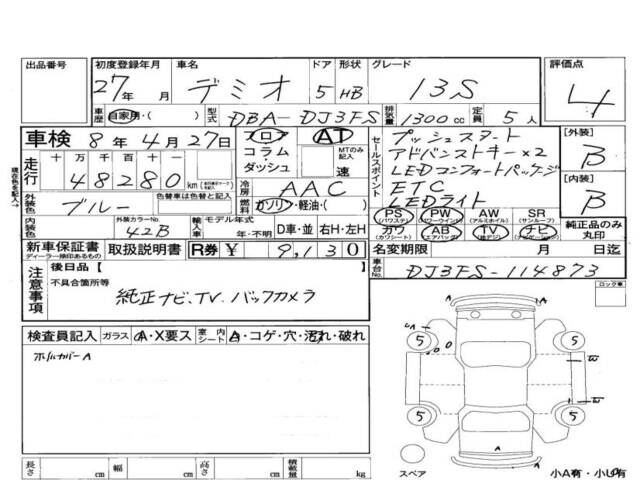 出品番号 初度登録年月 車名 ドア 形状 グレード 評価点
27年 月 デミオ 5 HB 13S 4
車歴 自家用・( ) 型式 DBA-DJ3FS 排気量 1300cc 定員 5人
車検 8年4月27日 フロア AT セールスポイント プッシュスタート [外装]
現在値を記入→ 走行 十 万 千 百 十 一 コラム・ MTのみ記入 アドバンストキー×2 B
48280 km ダッシュ 速 LEDコンフォートパッケージ
外装色 ブルー 色替車は色替と記入 冷房 AAC ETC [内装]
燃料 ガソリン・軽油・( ) LEDライト B
内装色 外装カラーNo. 42B 輸入車 モデル年式 年・不明 D車・並 右H・左H PS (パワステ) PW (パワーウインド) AW (アルミホイル) SR (サンルーフ)
カワ (カワシート) AB (エアバッグ) TV (地デジ) ナビ 純正品のみ丸印
新車保証書 ディーラー捺印あるもの 取扱説明書 R券 ¥ 9,130 名変期限 月 日迄
注意事項 後日品【 】 車台No. DJ3FS-114873
不具合箇所等 ロック車
純正ナビ、TV、バックカメラ
検査員記入 ガラス A・X要ス 室内シート A・コゲ・穴・汚れ・破れ
ホイルカバーA
A
A
5 5
5 5
スペア
長さ cm 幅 cm 高さ cm 積載量 kg
小A有・小U有